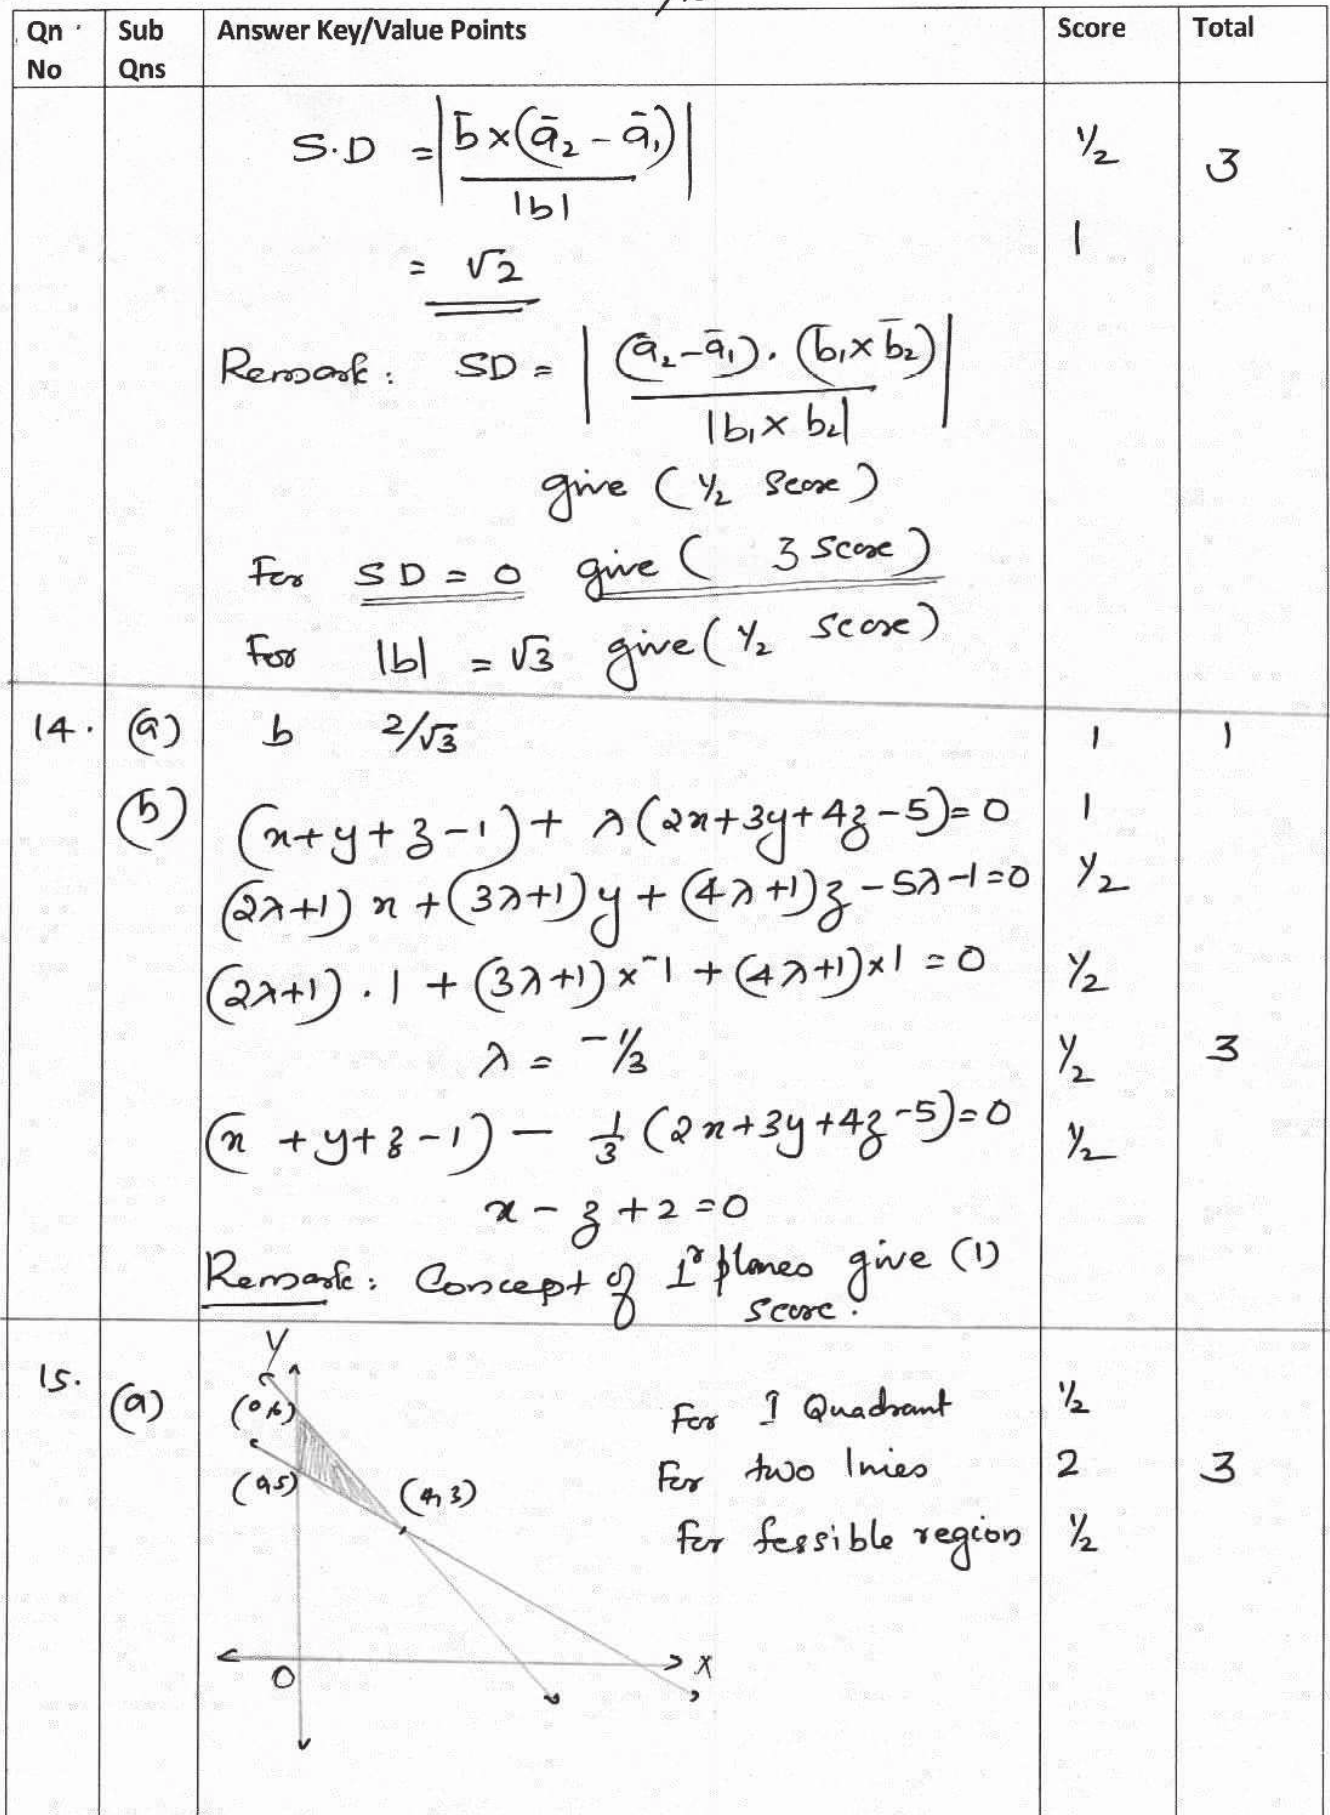 Qn No Sub Qns Answer Key/Value Points Score Total
S.D = |b̄×(ā₂ - ā₁)/|b|| ½ 3
= √2 1
Remark: SD = |(ā₂-ā₁).(b̄₁×b̄₂)/|b₁×b₂||
give (½ Score)
For SD = 0 give ( 3 Score)
For |b| = √3 give (½ Score)
14. (a) b 2/√3 1 1
(b) (x+y+z-1)+ λ(2x+3y+4z-5)=0 1
(2λ+1)x+(3λ+1)y+(4λ+1)z-5λ-1=0 ½
(2λ+1).1+(3λ+1)×-1+(4λ+1)×1=0 ½
λ = -1/3 ½ 3
(x+y+z-1) - 1/3(2x+3y+4z-5)=0 ½
x-z+2=0
Remark: Concept of ⊥r planes give (1)
Score.
15. (a) Y
(0,6) For I Quadrant ½
(0,5) (4,3) For two lines 2 3
For fessible region ½
O X